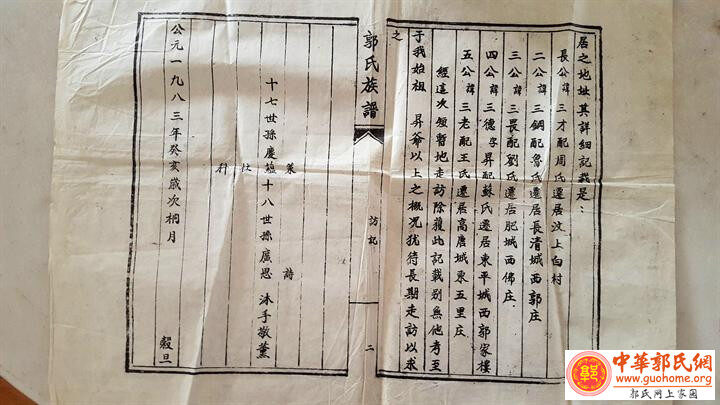 居之地址其詳細記載是：
長公諱三才配周氏遷居汶上白村
二公諱三鋼配魯氏遷居長清城西郭庄
三公諱三畏配劉氏遷居肥城西佛庄
四公諱三德字昇配蘇氏遷居東平城西郭家樓
五公諱三老配王氏遷居高唐城東五里庄
經這次短暫地走訪除獲此記載別無他考至
于我始祖昇爺以上之概况犹待長期走訪以求
之
郭氏族譜
訪記
二
詩
十七世孫慶 十八世孫廣恩 沐手敬薰
公元一九八三年癸亥歲次桐月 穀旦
中華郭氏網
www.guohome.org
郭氏网上家園